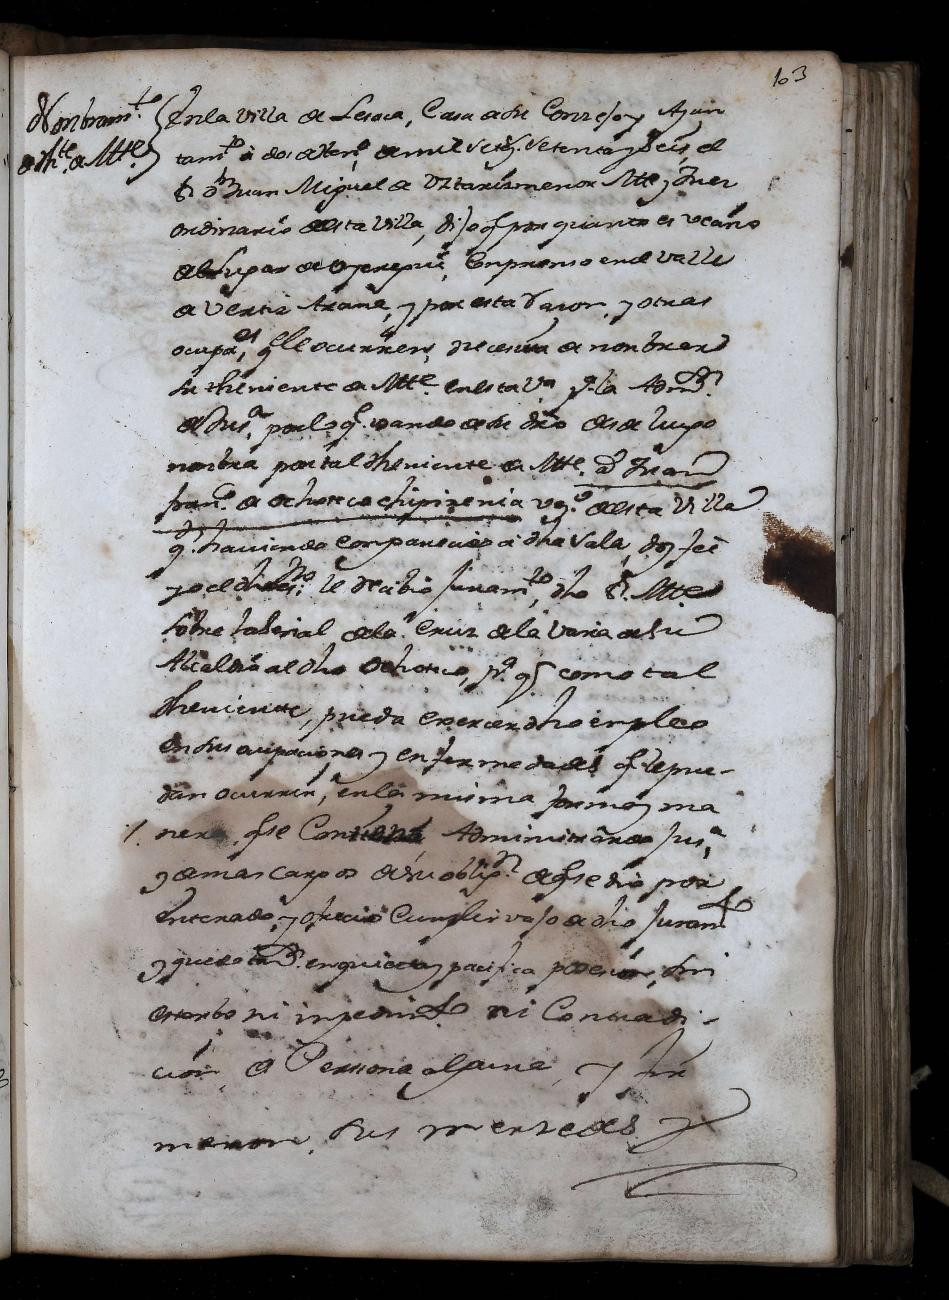 103
Nombram.to
de Th.te de Alc.e
En la Villa de Lesaca, Casa de su Conzejo y Ayun
tam.to a dos de Hen.o de mil set.s setenta y seis, el
S.r D.n Juan Miguel de Vztariz menor Alc.e y Juez
ordinario de esta Villa, dijo q.e por quanto es vecino
del Lugar de Oyeregui, Conprenso en el Valle
de Vertiz Arana, y por esta razon, y otras
ocupa.es q.e le ocurren, necesita de nonbrar
su theniente de Alc.e en esta V.a p.a la Adm.on
de Jus.a por lo q.e vsando de su dro desde luego
nonbra por tal theniente de Alc.e a Juan
fran.co de Ochoteco chipirenia vez.o de esta Villa
q.e haviendo conparecido a dha Sala, doy fee
yo el dho es.no le recibio juram.to dho S.r Alc.e
sobre la señal de la Cruz de la Varia de su
Alcaldia al dho Ochoteco, p.a q.e como tal
theniente, pueda exercer dho enpleo
en sus ocupaciones y enfermedades q.e le pue-
dan ocurrir, en la misma forma y ma
nera q.e se Contiene Administrando Jus.a
y demas cargos de su oblig.on de q.e se dio por
enterado, y ofrecio Cumplir vajo de dho Juram.to
y quedo en quieta y pacifica posesion, sin
estorbo ni inpedim.to ni Contradi-
cion de Persona alguna, y fir
maron sus mercedes